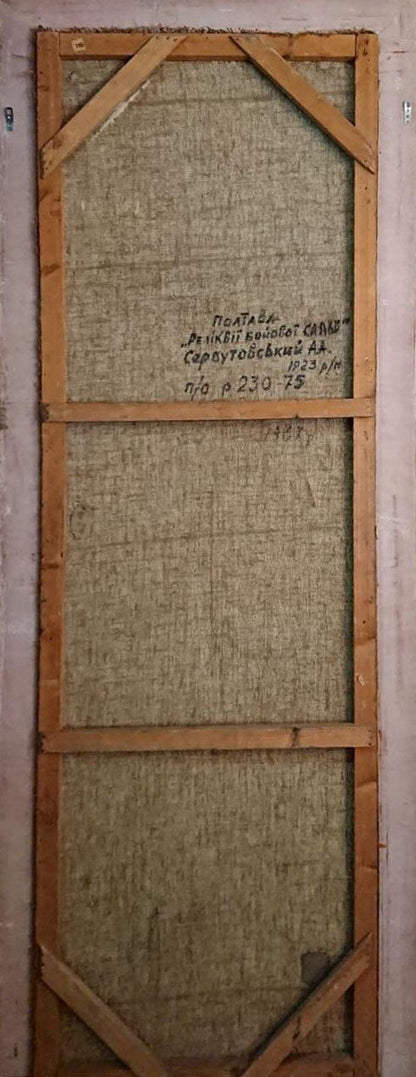 Полтава
„Реліквії бойової слави"
Сервутовський А.А.
1923 р/н
п/о р 230-75